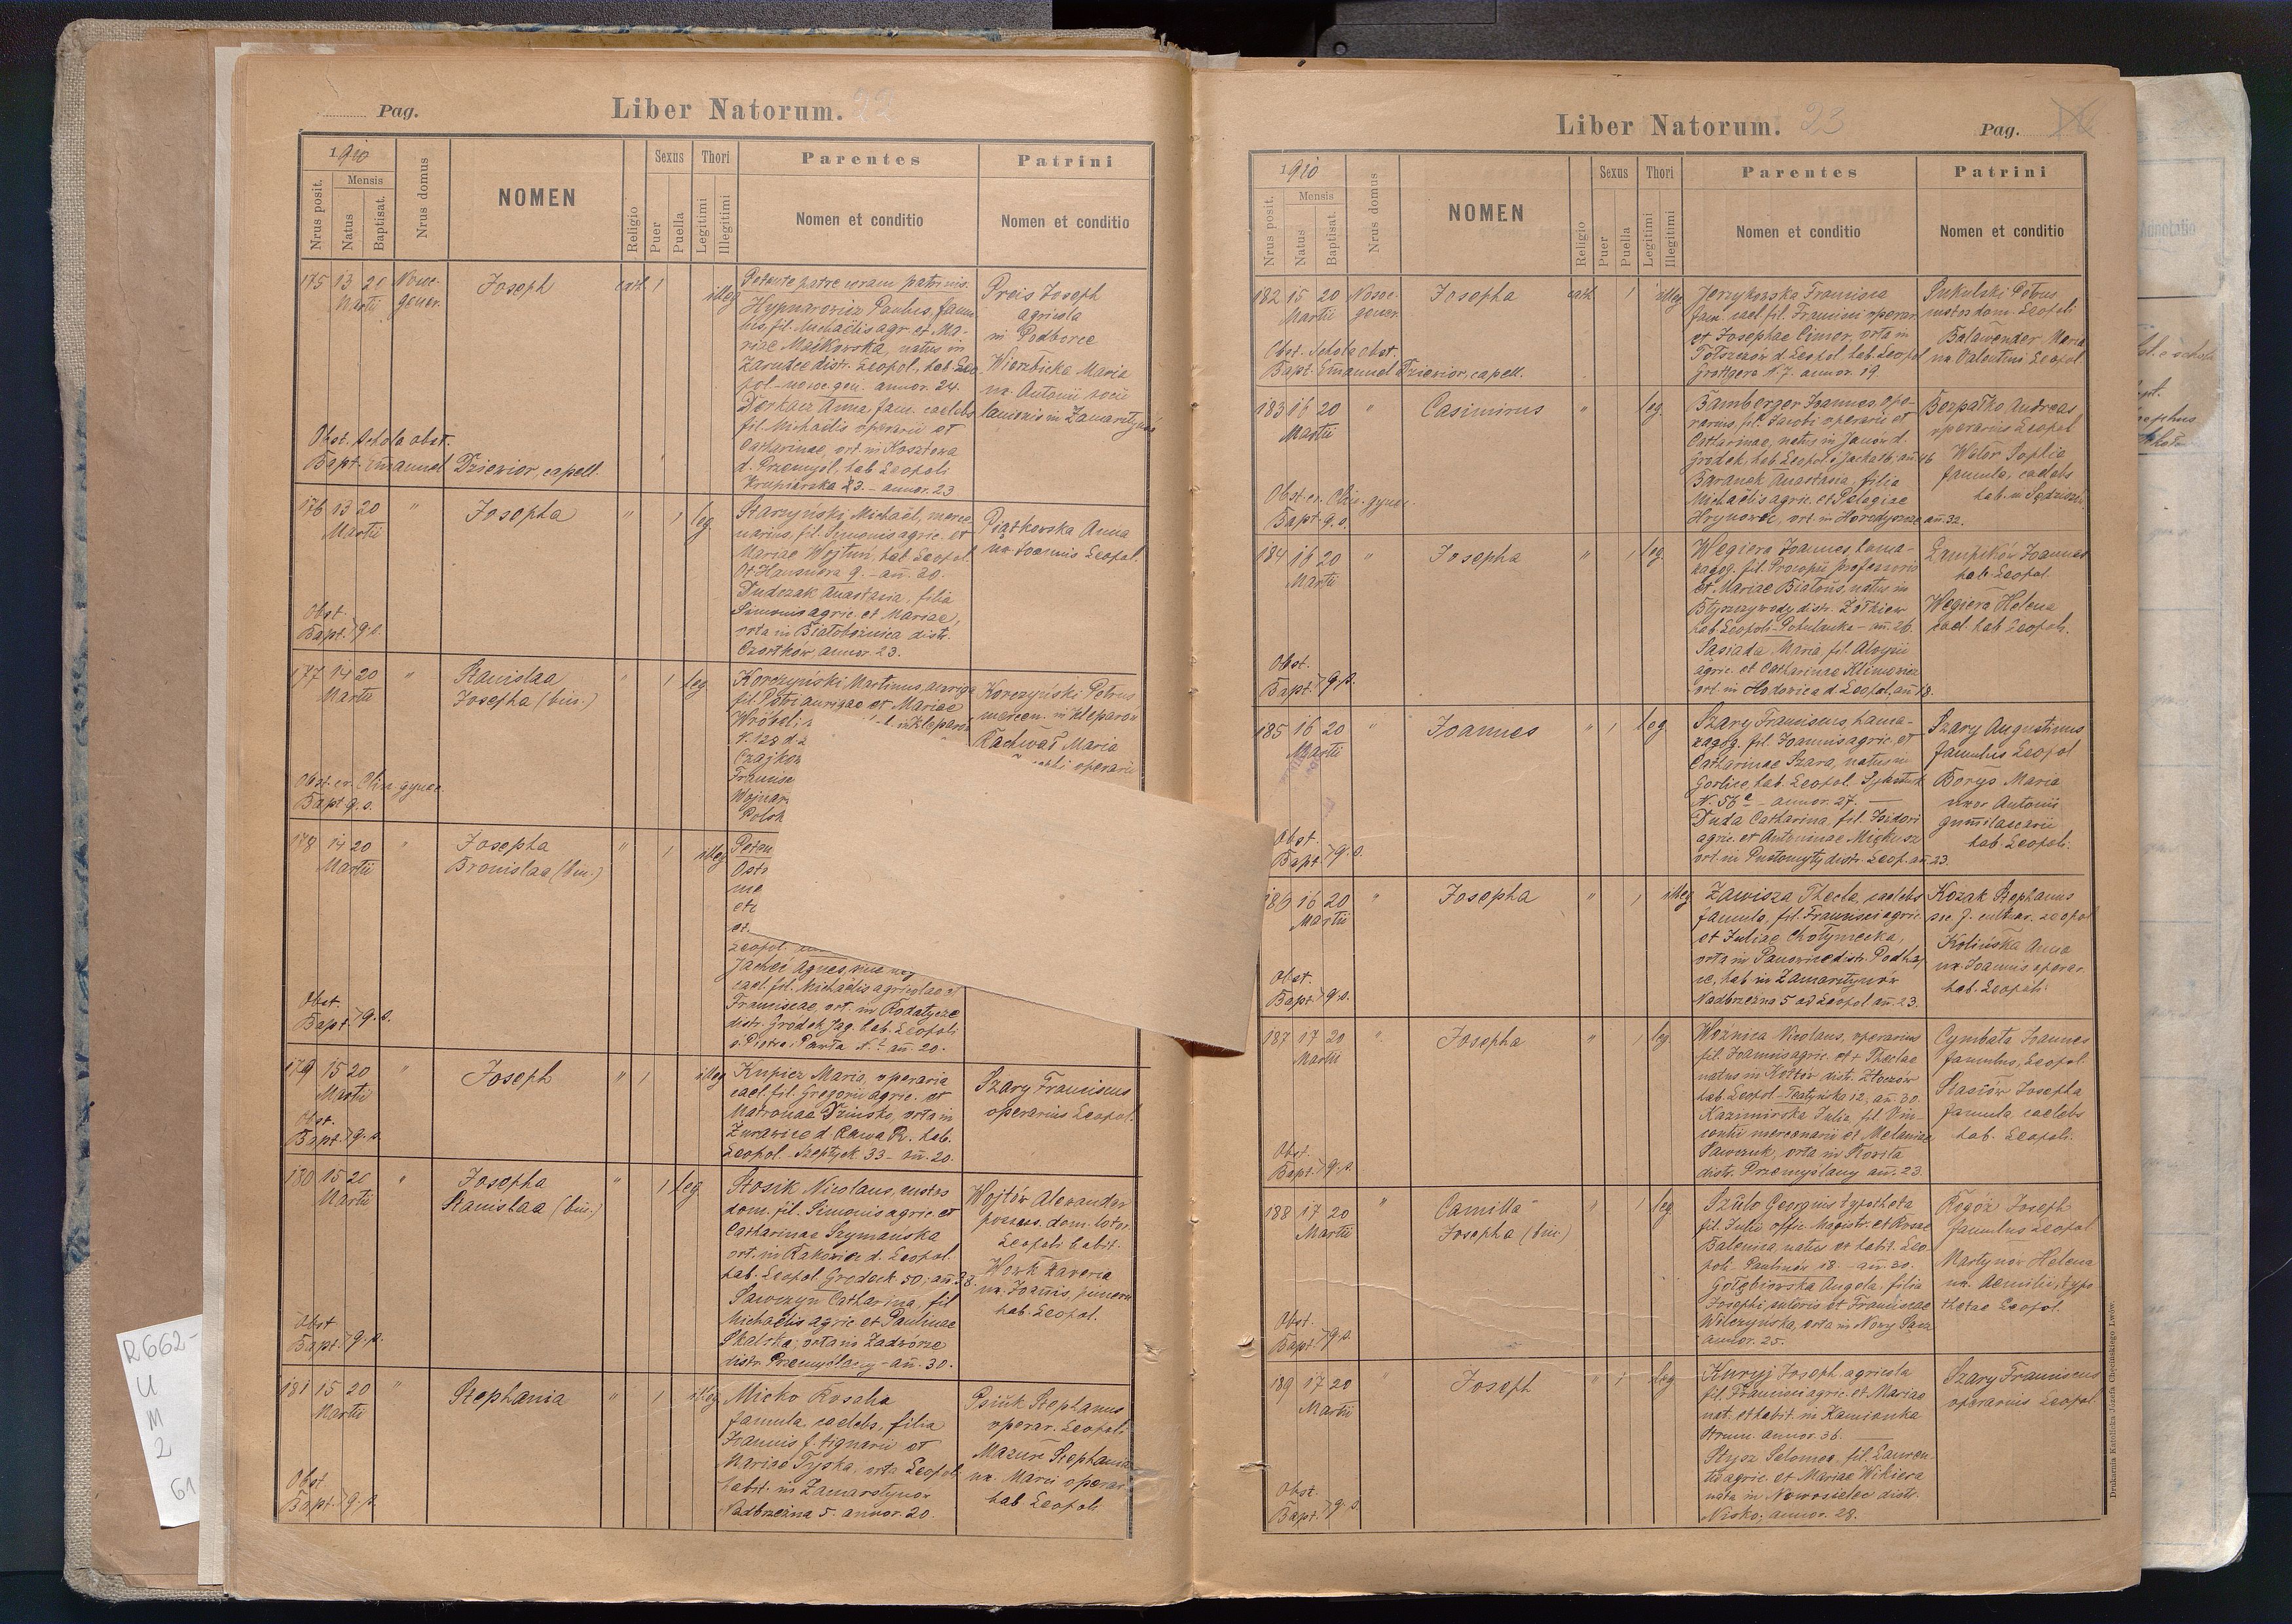 Pag.
Liber Natorum. 22
1910
Nrus posit.
Mensis
Natus
Baptisat.
Nrus domus
NOMEN
Religio
Sexus
Puer
Puella
Thori
Legitimi
Illegitimi
Parentes
Nomen et conditio
Patrini
Nomen et conditio
175 13 20
Martii
Nosoc.
gener.
Joseph
cath 1 illeg
Petente patre veram patrinis.
Hypnarowicz Paulus, famu-
lus, fil. Michaelis agr. et Ma-
riae Maćkowska, natus in
Zarudce distr. Leopol., hab. Leo-
pol. nosoc. gen. annor. 24.
Derkacz Anna, fam. caelebs
fil. Michaelis operarii et
Catharinae, ort. in Kosztowa
d. Przemyśl, hab. Leopoli
Krupiarska 23. - annor. 23
Preis Joseph
agricola
in Podborce
Wierzbicka Maria
ux. Antonii socii
lanionis in Zamarstynów
Obst. Schola obst.
Bapt. Emanuel Dziewior, capell.
176 13 20 "
Martii
Josepha
" 1 leg
Starzyński Michaël, merce-
narius, fil. Simonis agric. et
Mariae Wojtuń, hab. Leopol.
Ot. Hausnera 9. - añ. 30.
Dudczak Anastasia, filia
Simonis agric. et Mariae,
orta in Białobożnica distr.
Czortków, annor. 23.
Piątkowska Anna
ux. Joannis Leopol.
Obst.
Bapt. q. s.
177 14 20 "
Martii
Stanislaa
Josepha (bin.)
" 1 leg
Korczyński Martinus, auriga
fil. Petri aurigae et Mariae
N. 128 d.
Korczyński Petrus
mercen. in Kleparów
Kachwał Maria
operarii
Obst. ex. Clin. gynec.
Bapt. q. s.
178 14 20 "
Martii
Josepha
Bronislaa (bin.)
" 1 illeg
Leopol.
Jacheć Agnes,
cael. fil. Michaëlis agricolae et
Franciscae, ort. in Rodatycze
distr. Grodek Jag. hab. Leopoli
s. Piotra i Pawła N. 2 añ. 20.
Obst.
Bapt. q. s.
179 15 20 "
Martii
Joseph
" 1 illeg
Kupicz Maria, operaria
cael. fil. Gregorii agric. et
Matronae Dzinsko, orta in
Żurawice d. Rawa R. hab.
Leopol. Szeptyck. 33 - añ. 20.
Szary Franciscus
operarius Leopol.
Obst.
Bapt. q. s.
180 15 20 "
Martii
Josepha
Stanislaa (bin.)
" 1 leg
Stosik Nicolaus, custos
dom. fil. Simonis agric. et
Catharinae Szymańska
ort. in Rakowiec d. Leopol.
hab. Leopol. Grodeck. 50, añ. 38.
Sawczyn Catharina, fil.
Michaëlis agric. et Paulinae
Skalska, orta in Zadwórze
distr. Przemyślany - añ. 30.
Wojtów Alexander
possess. dom. lotr.
Leopoli habit.
Wowk Xaveria
ux. Joannis,
hab. Leopol.
Obst.
Bapt. q. s.
181 15 20 "
Martii
Stephania
" 1 illeg
Micko Rosalia
famula caelebs, filia
Joannis f. lignarii et
Mariae Tyska, orta Leopol.
habit. in Zamarstynów
Nadbrzeżna 5. annor. 20.
Psiuk Stephanus
operar. Leopoli
Mazur Stephania
ux. Marci operar.
hab. Leopoli.
Obst.
Bapt. q. s.
R662-
U
M
2
61
Liber Natorum. 23
Pag.
1910
Nrus posit.
Mensis
Natus
Baptisat.
Nrus domus
NOMEN
Religio
Sexus
Puer
Puella
Thori
Legitimi
Illegitimi
Parentes
Nomen et conditio
Patrini
Nomen et conditio
182 15 20
Martii
Nosoc.
gener.
Josepha
cath. 1 illeg
Jerzykowska Francisca
fam. cael. fil. Francisci operar.
et Josephae Cimer, orta in
Tołszczów d. Leopol. hab. Leopol
Grottgera N. 7. annor. 19
Sukulski Petrus
custos dom. Leopoli
Balawender Maria
ux. Valentini Leopol.
Obst. Schola obst.
Bapt. Emanuel Dziewior, capell.
183 16 20 "
Martii
Casimirus
" leg.
Bamberger Joannes, ope-
rarius, fil. Jacobi operarii et
Catharinae, natus in Janów d.
Grodek, hab. Leopol. s. Jacka 16, añ. 46
Baranek Anastasia, filia
Michaëlis agric. et Pelagiae
Hrynowec, ort. in Horodyszcze añ. 32.
Bezpałko Andreas
operarius Leopol
Wator Sophia
famula, caelebs
Obst. ex. Clin. gynec.
Bapt. q. s.
184 16 20 "
Martii
Josepha
" 1 leg.
Węgiera Joannes, hama-
xagog. fil. Procopii professoris
et Mariae Białous, natus in
Błyszczywody distr. Żółkiew
hab. Leopoli - Pohulanka - añ. 26.
Sasiada Maria, fil. Aloysii
agric. et Catharinae Klimowicz
ort. in Hodowica d. Leopol, añ. 18.
Joannes
hab. Leopol.
Węgiera Helena
cael. hab. Leopoli.
Obst.
Bapt. q. s.
185 16 20 "
Martii
Joannes
" 1 leg
Szary Franciscus, hama-
xagog. fil. Joannis agric. et
Catharinae Szara, natus in
Gorlice, hab. Leopol.
N. 56 a - annor. 27.
Duda Catharina, fil. Isidori
agric. et Antoninae Miękusz
ort. in Pustomyty distr. Leop. añ. 23.
Szary Augustinus
famulus Leopol
Borys Maria
uxor Antonii
hab. Leopoli.
Obst.
Bapt. q. s.
186 16 20 "
Martii
Josepha
" 1 illeg
Zawisza Thecla, caelebs
famula, fil. Francisci agric.
et Juliae Chołyniecka,
orta in Panowice distr. Podhaj-
ce, hab. in Zamarstynów
Nadbrzeżna 5 ad Leopol. añ. 23.
Kozak Stephanus
Kolińska Anna
ux. Joannis operar.
hab. Leopoli.
Obst.
Bapt. q. s.
187 17 20 "
Martii
Josepha
" 1 leg
Woźnica Nicolaus, operarius
fil. Joannis agric. et + Theclae
natus in Kołtów distr. Złoczów
hab. Leopol. - Teatyńska 12, añ. 30.
Kazimirska Julia, fil. Vin-
centii mercenarii et Melaniae
Sawczuk, orta in Kosita
distr. Przemyślany añ. 23.
Cymbała Joannes
famulus, Leopol.
Stasiów Josepha
famula, caelebs
hab. Leopoli.
Obst.
Bapt. q. s.
188 17 20 "
Martii
Camilla
Josepha (bin.)
" 1 leg
Szulo Georgius typotheta
fil. Julii offic. Magistr. et Rosae
Balenina, natus et habit. Leo-
poli - Paulinów 18. - añ. 30.
Gołębiowska Angela, filia
Josephi, sutoris et Franciscae
Wilczyńska, orta in Nowy Sącz
annor. 25.
Rogóz Joseph
famulus Leopol
Martynow Helena
ux. Aemilii, typo-
thetae Leopol.
Obst.
Bapt. q. s.
189 17 20 "
Martii
Joseph
" 1 leg
Kuryj Joseph, agricola
fil. Francisci agric. et Mariae
nat. et habit. in Kamionka
Strum. annor. 36.
Stysz Salomea, fil. Lauren-
tii agric. et Mariae Wikiera
nata in Nowosielec distr.
Nisko; annor. 28.
Szary Franciscus
operarius Leopol.
Obst.
Bapt. q. s.
Drukarnia Katolicka Józefa Chęcińskiego Lwów.
Adnotatio